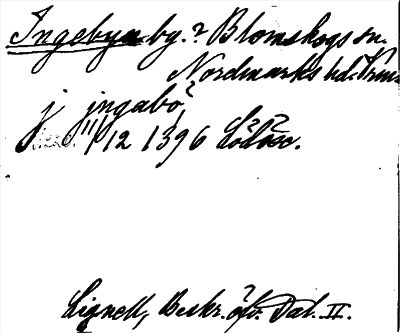 Ingebyn by. ? Blomskogs sn.
Nordmarks hd. Vrml.
j jngabö
11/12 1396 Lödöse.
Lignell, Beskr. öfv. Dal. II.